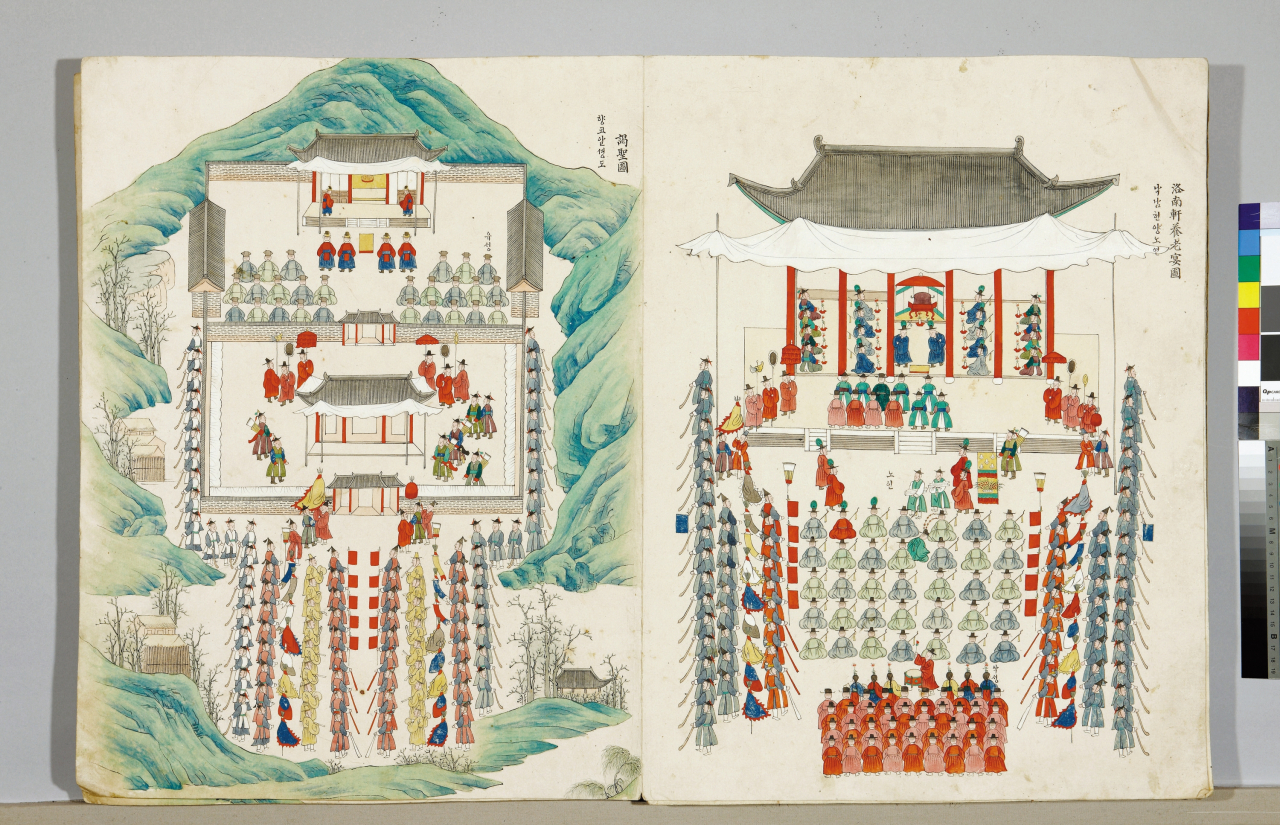 洛南軒養老宴圖
낙남헌양노연
노인
謁聖圖
향교알셩도